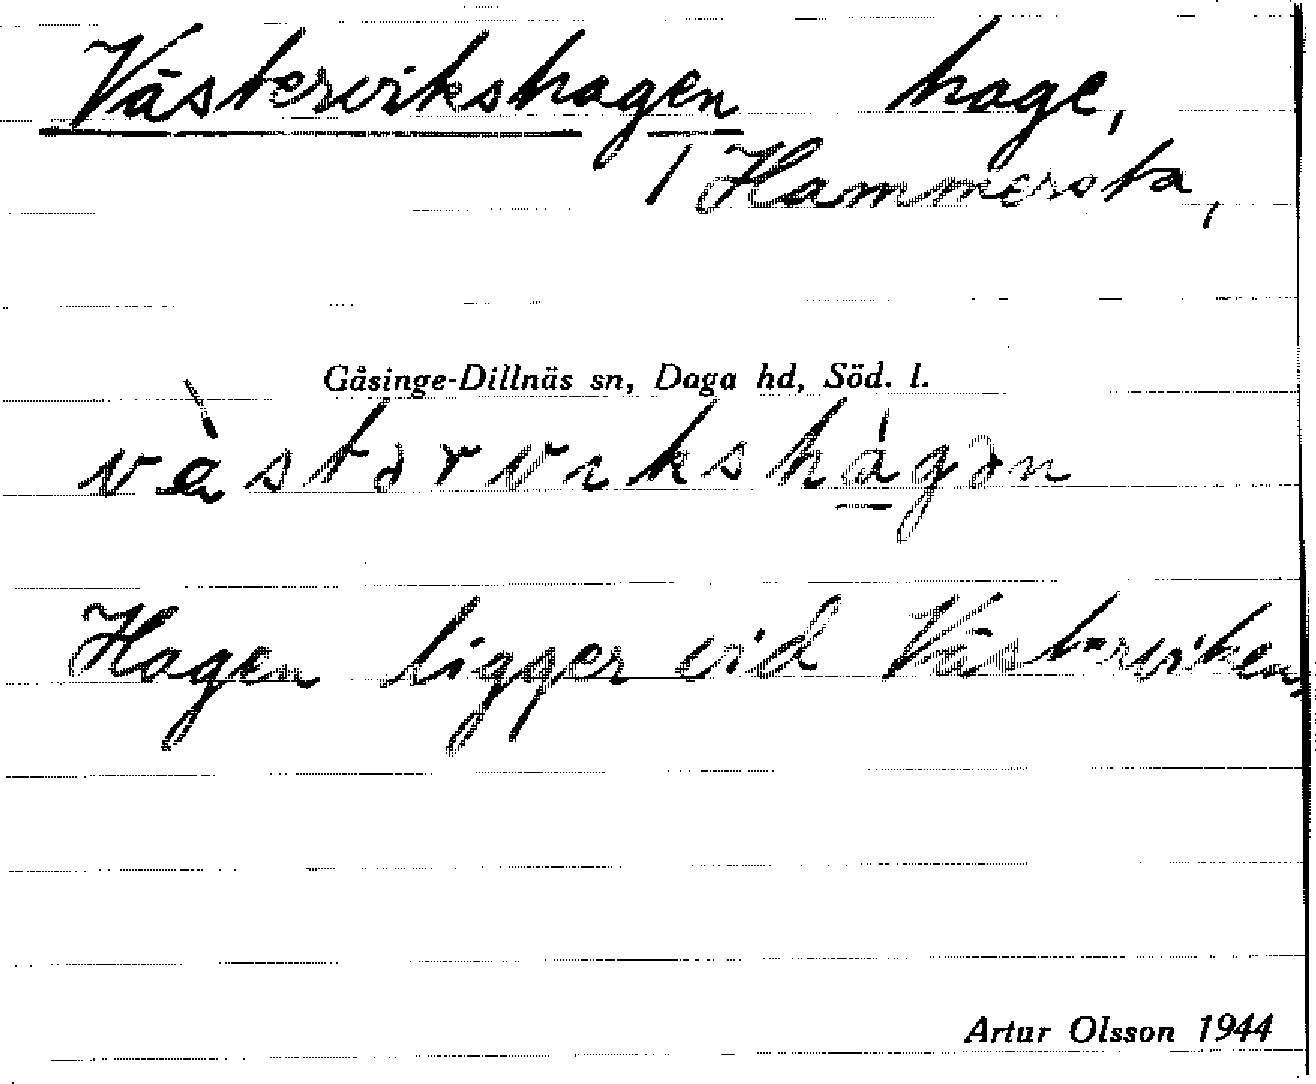 Västervikshagen hage,
/ Hammersta,
Gåsinge-Dillnäs sn, Daga hd, Söd. l.
Hagen ligger vid Västerviken,
Artur Olsson 1944